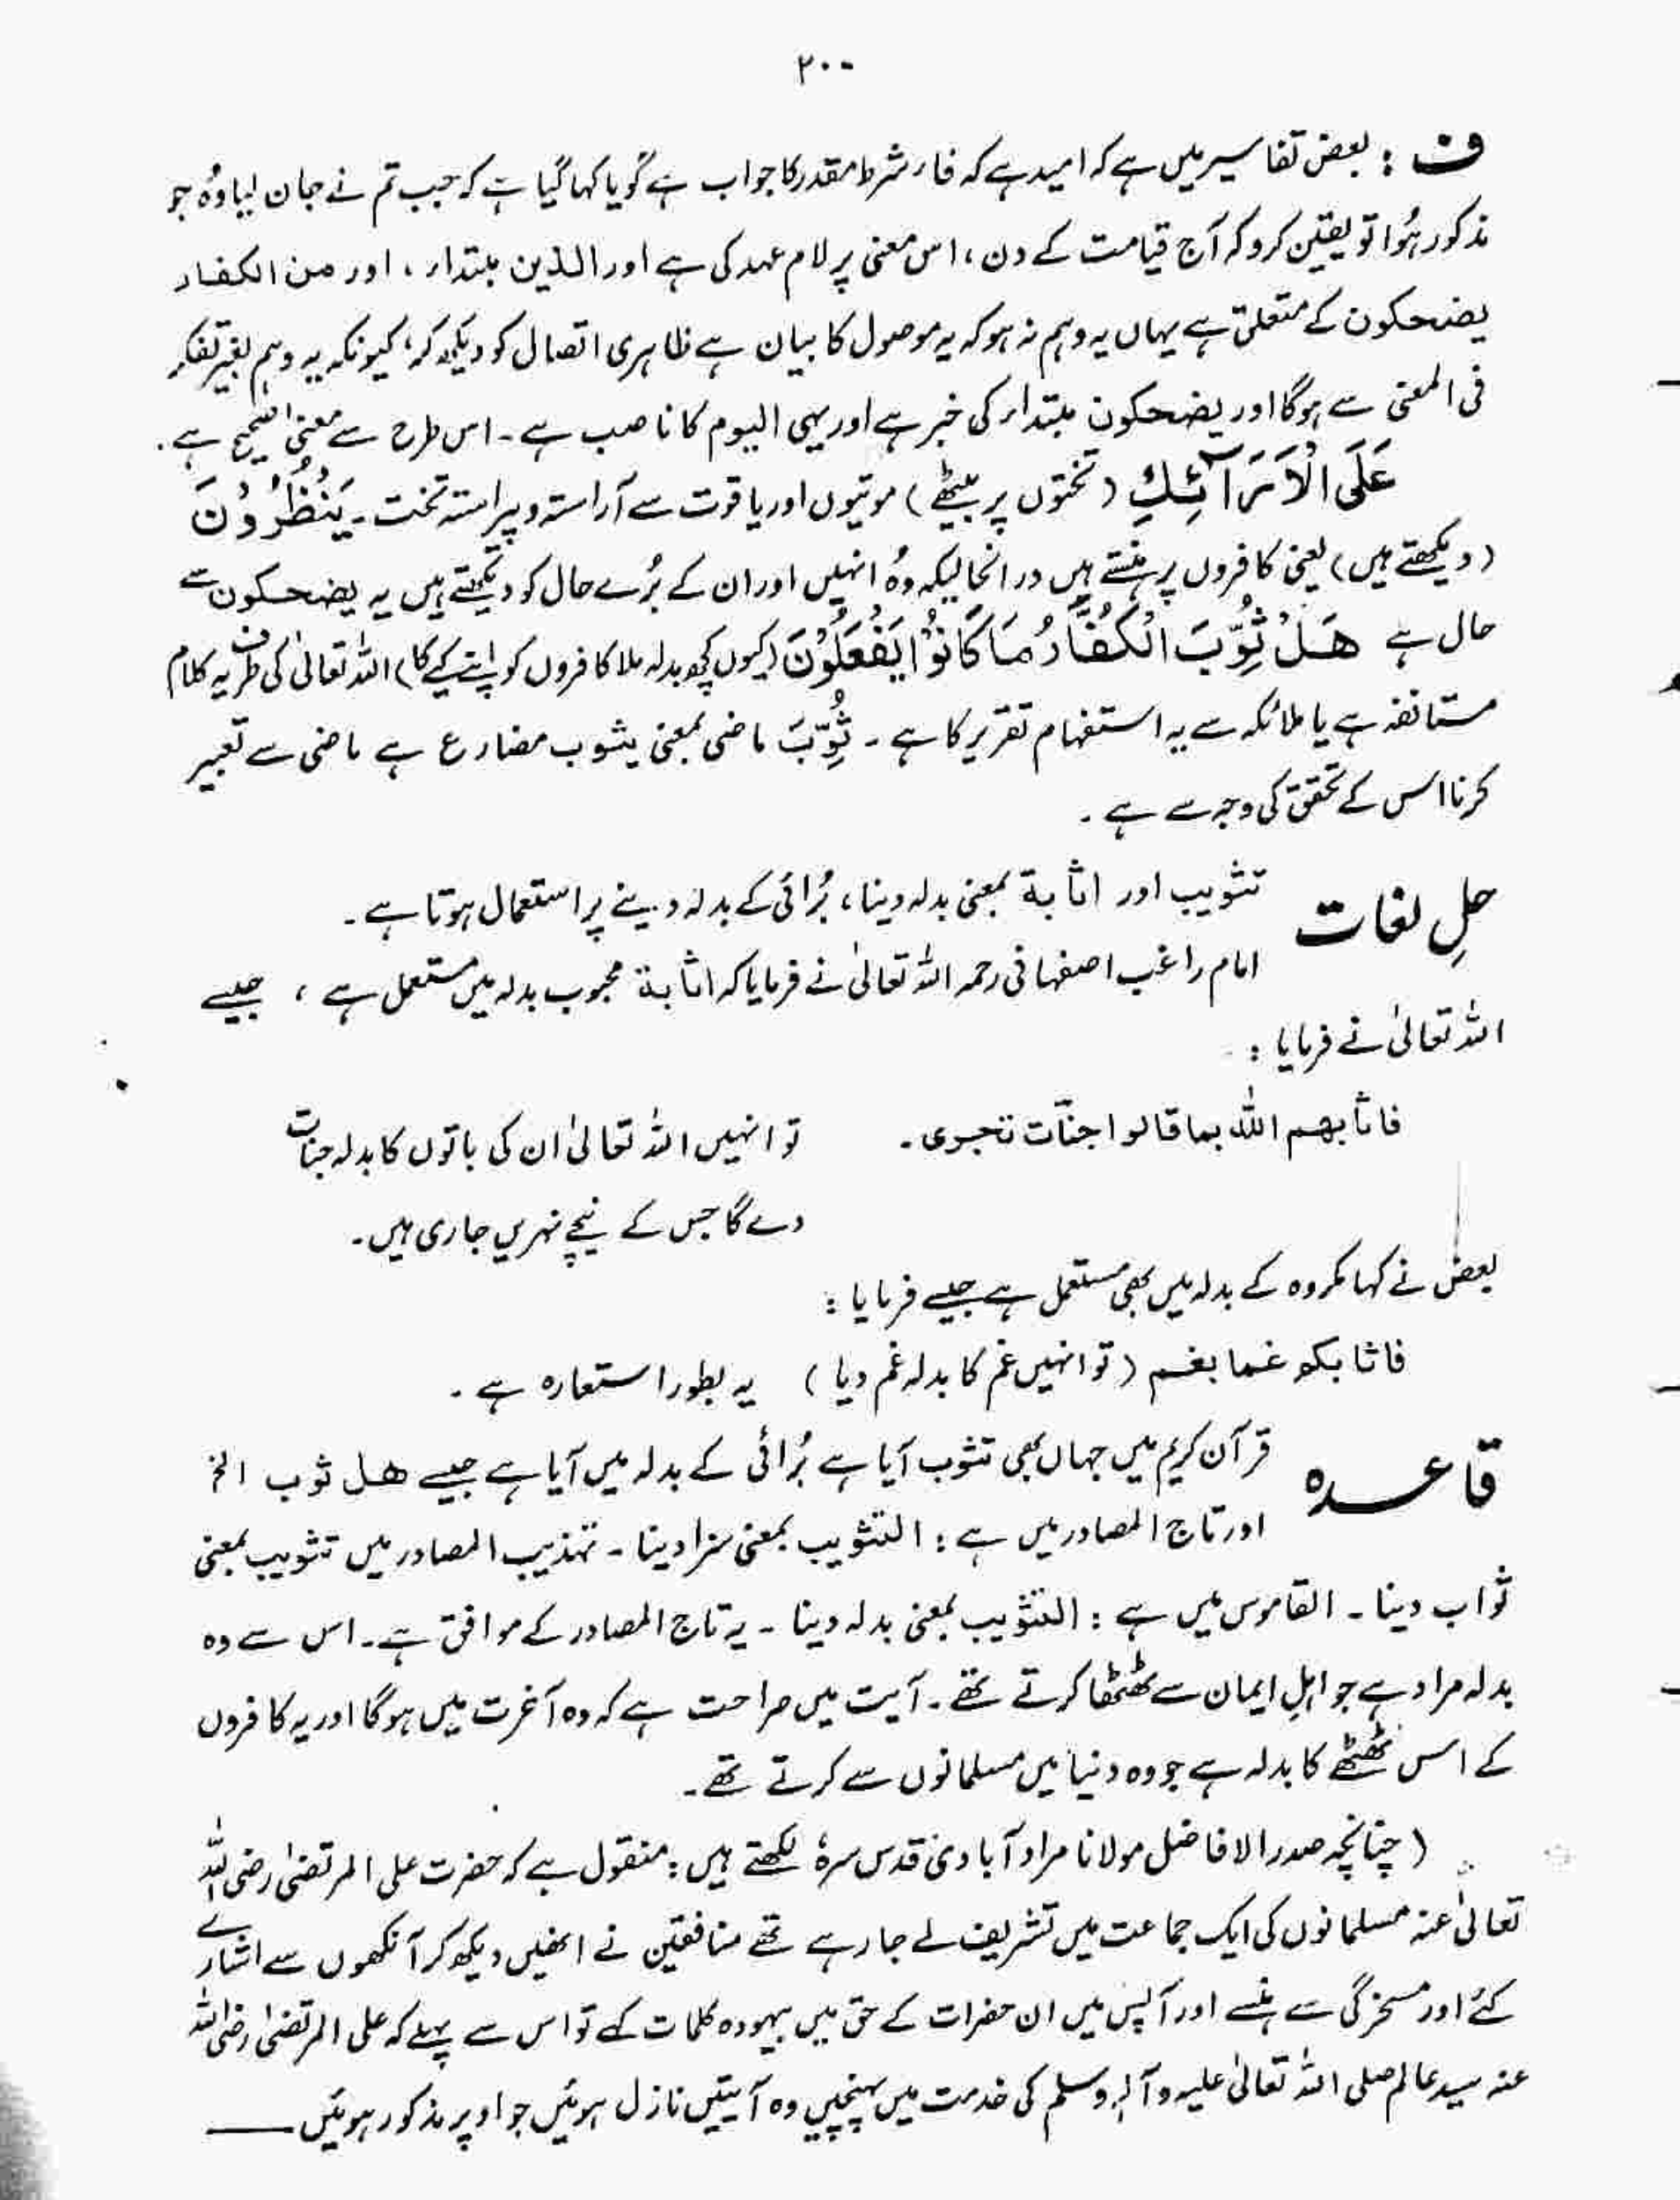 ۲۰۰
ف : بعض تفاسیر میں ہے کہ امید ہے کہ فاء شرط مقدر کا جواب ہے گویا کہا گیا ہے کہ جب تم نے جان لیا وُہ جو
مذکور ہُوا تو یقین کرو کہ آج قیامت کے دن ، اس معنی پر لام عہد کی ہے اور الذین مبتداء ، اور من الکفار
یضحکون کے متعلق ہے یہاں یہ وہم نہ ہو کہ یہ موصول کا بیان ہے ظاہری اتصال کو دیکھ کر ، کیونکہ یہ وہم بغیر تفکر
فی المعنی سے ہوگا اور یضحکون مبتداء کی خبر ہے اور یہی الیوم کا ناصب ہے ۔ اس طرح سے معنیٰ صحیح ہے ۔
عَلَی الْاَرَآئِکِ (تختوں پر بیٹھے) موتیوں اور یاقوت سے آراستہ و پیراستہ تخت ۔ یَنْظُرُوْنَ
(دیکھتے ہیں) یعنی کافروں پر ہنستے ہیں درانحالیکہ وُہ انہیں اور ان کے بُرے حال کو دیکھتے ہیں یہ یضحکون سے
حال ہے ھَلْ ثُوِّبَ الْکُفَّارُ مَا کَانُوْا یَفْعَلُوْنَ (کیوں کچھ بدلہ ملا کافروں کو اپنے کیے کا) اللہ تعالیٰ کی طرف یہ کلام
مستانفہ ہے یا ملائکہ سے یہ استفہام تقریر کا ہے ۔ ثُوِّبَ ماضی بمعنی یثوب مضارع ہے ماضی سے تعبیر
کرنا اس کے تحقق کی وجہ سے ہے ۔
حلِ لغات تثویب اور اثابۃ بمعنی بدلہ دینا ، بُرائی کے بدلہ دینے پر استعمال ہوتا ہے ۔
امام راغب اصفہانی رحمہ اللہ تعالیٰ نے فرمایا کہ اثابۃ محبوب بدلہ میں مستعمل ہے ، جیسے
اللہ تعالیٰ نے فرمایا :
فاثابھم اللہ بما قالوا جنّات تجری ۔ تو انہیں اللہ تعالیٰ ان کی باتوں کا بدلہ جنات
دے گا جس کے نیچے نہریں جاری ہیں ۔
بعض نے کہا مکروہ کے بدلہ میں بھی مستعمل ہے جیسے فرمایا :
فاثابکم غما بغم (تو انہیں غم کا بدلہ غم دیا) یہ بطور استعارہ ہے ۔
قاعدہ قرآن کریم میں جہاں بھی تثوب آیا ہے بُرائی کے بدلہ میں آیا ہے جیسے ھل ثوب الخ
اور تاج المصادر میں ہے : التثویب بمعنی سزا دینا ۔ تہذیب المصادر میں تثویب بمعنی
ثواب دینا ۔ القاموس میں ہے : التثویب بمعنی بدلہ دینا ۔ یہ تاج المصادر کے موافق ہے ۔ اس سے وہ
بدلہ مراد ہے جو اہلِ ایمان سے ٹھٹھا کرتے تھے ۔ آیت میں صراحت ہے کہ وہ آخرت میں ہوگا اور یہ کافروں
کے اس ٹھٹھے کا بدلہ ہے جو وہ دنیا میں مسلمانوں سے کرتے تھے ۔
(چنانچہ صدر الافاضل مولانا مراد آبادی قدس سرہٗ لکھتے ہیں : منقول ہے کہ حضرت علی المرتضیٰ رضی اللہ
تعالیٰ عنہ مسلمانوں کی ایک جماعت میں تشریف لے جا رہے تھے منافقین نے انھیں دیکھ کر آنکھوں سے اشارے
کئے اور مسخرگی سے ہنسے اور آپس میں ان حضرات کے حق میں بیہودہ کلمات کہے تو اس سے پہلے کہ علی المرتضیٰ رضی اللہ
عنہ سید عالم صلی اللہ تعالیٰ علیہ وآلہٖ وسلم کی خدمت میں پہنچیں وہ آیتیں نازل ہوئیں جو اوپر مذکور ہوئیں ——